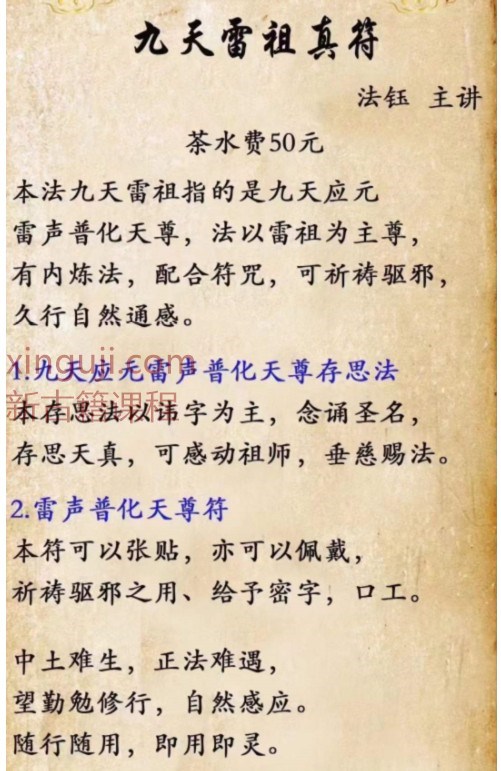 九天雷祖真符
法钰 主讲
茶水费50元
本法九天雷祖指的是九天应元
雷声普化天尊，法以雷祖为主尊，
有内炼法，配合符咒，可祈祷驱邪，
久行自然通感。
xinguji.com
1.九天应元雷声普化天尊存思法
新古籍课程
本存思法以讳字为主，念诵圣名，
存思天真，可感动祖师，垂慈赐法。
2.雷声普化天尊符
本符可以张贴，亦可以佩戴，
祈祷驱邪之用、给予密字，口工。
中土难生，正法难遇，
望勤勉修行，自然感应。
随行随用，即用即灵。